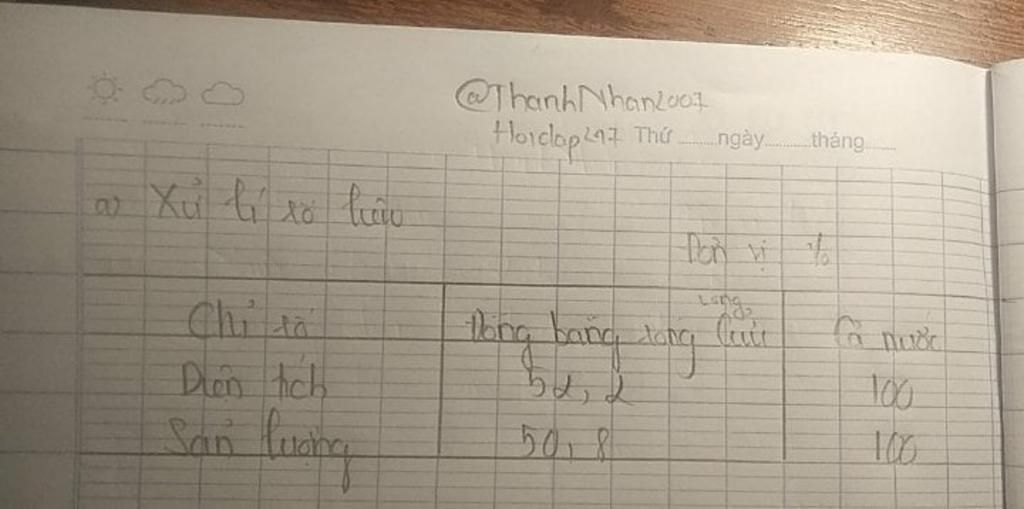 @ThanhNhan2007
Hoidap247 Thứ ........ngày..........tháng.......
a) Xử lí số liệu
Đơn vị %
Chỉ số Đồng bằng sông Cửu Long Cả nước
Diện tích 52,2 100
Sản lượng 50,8 100